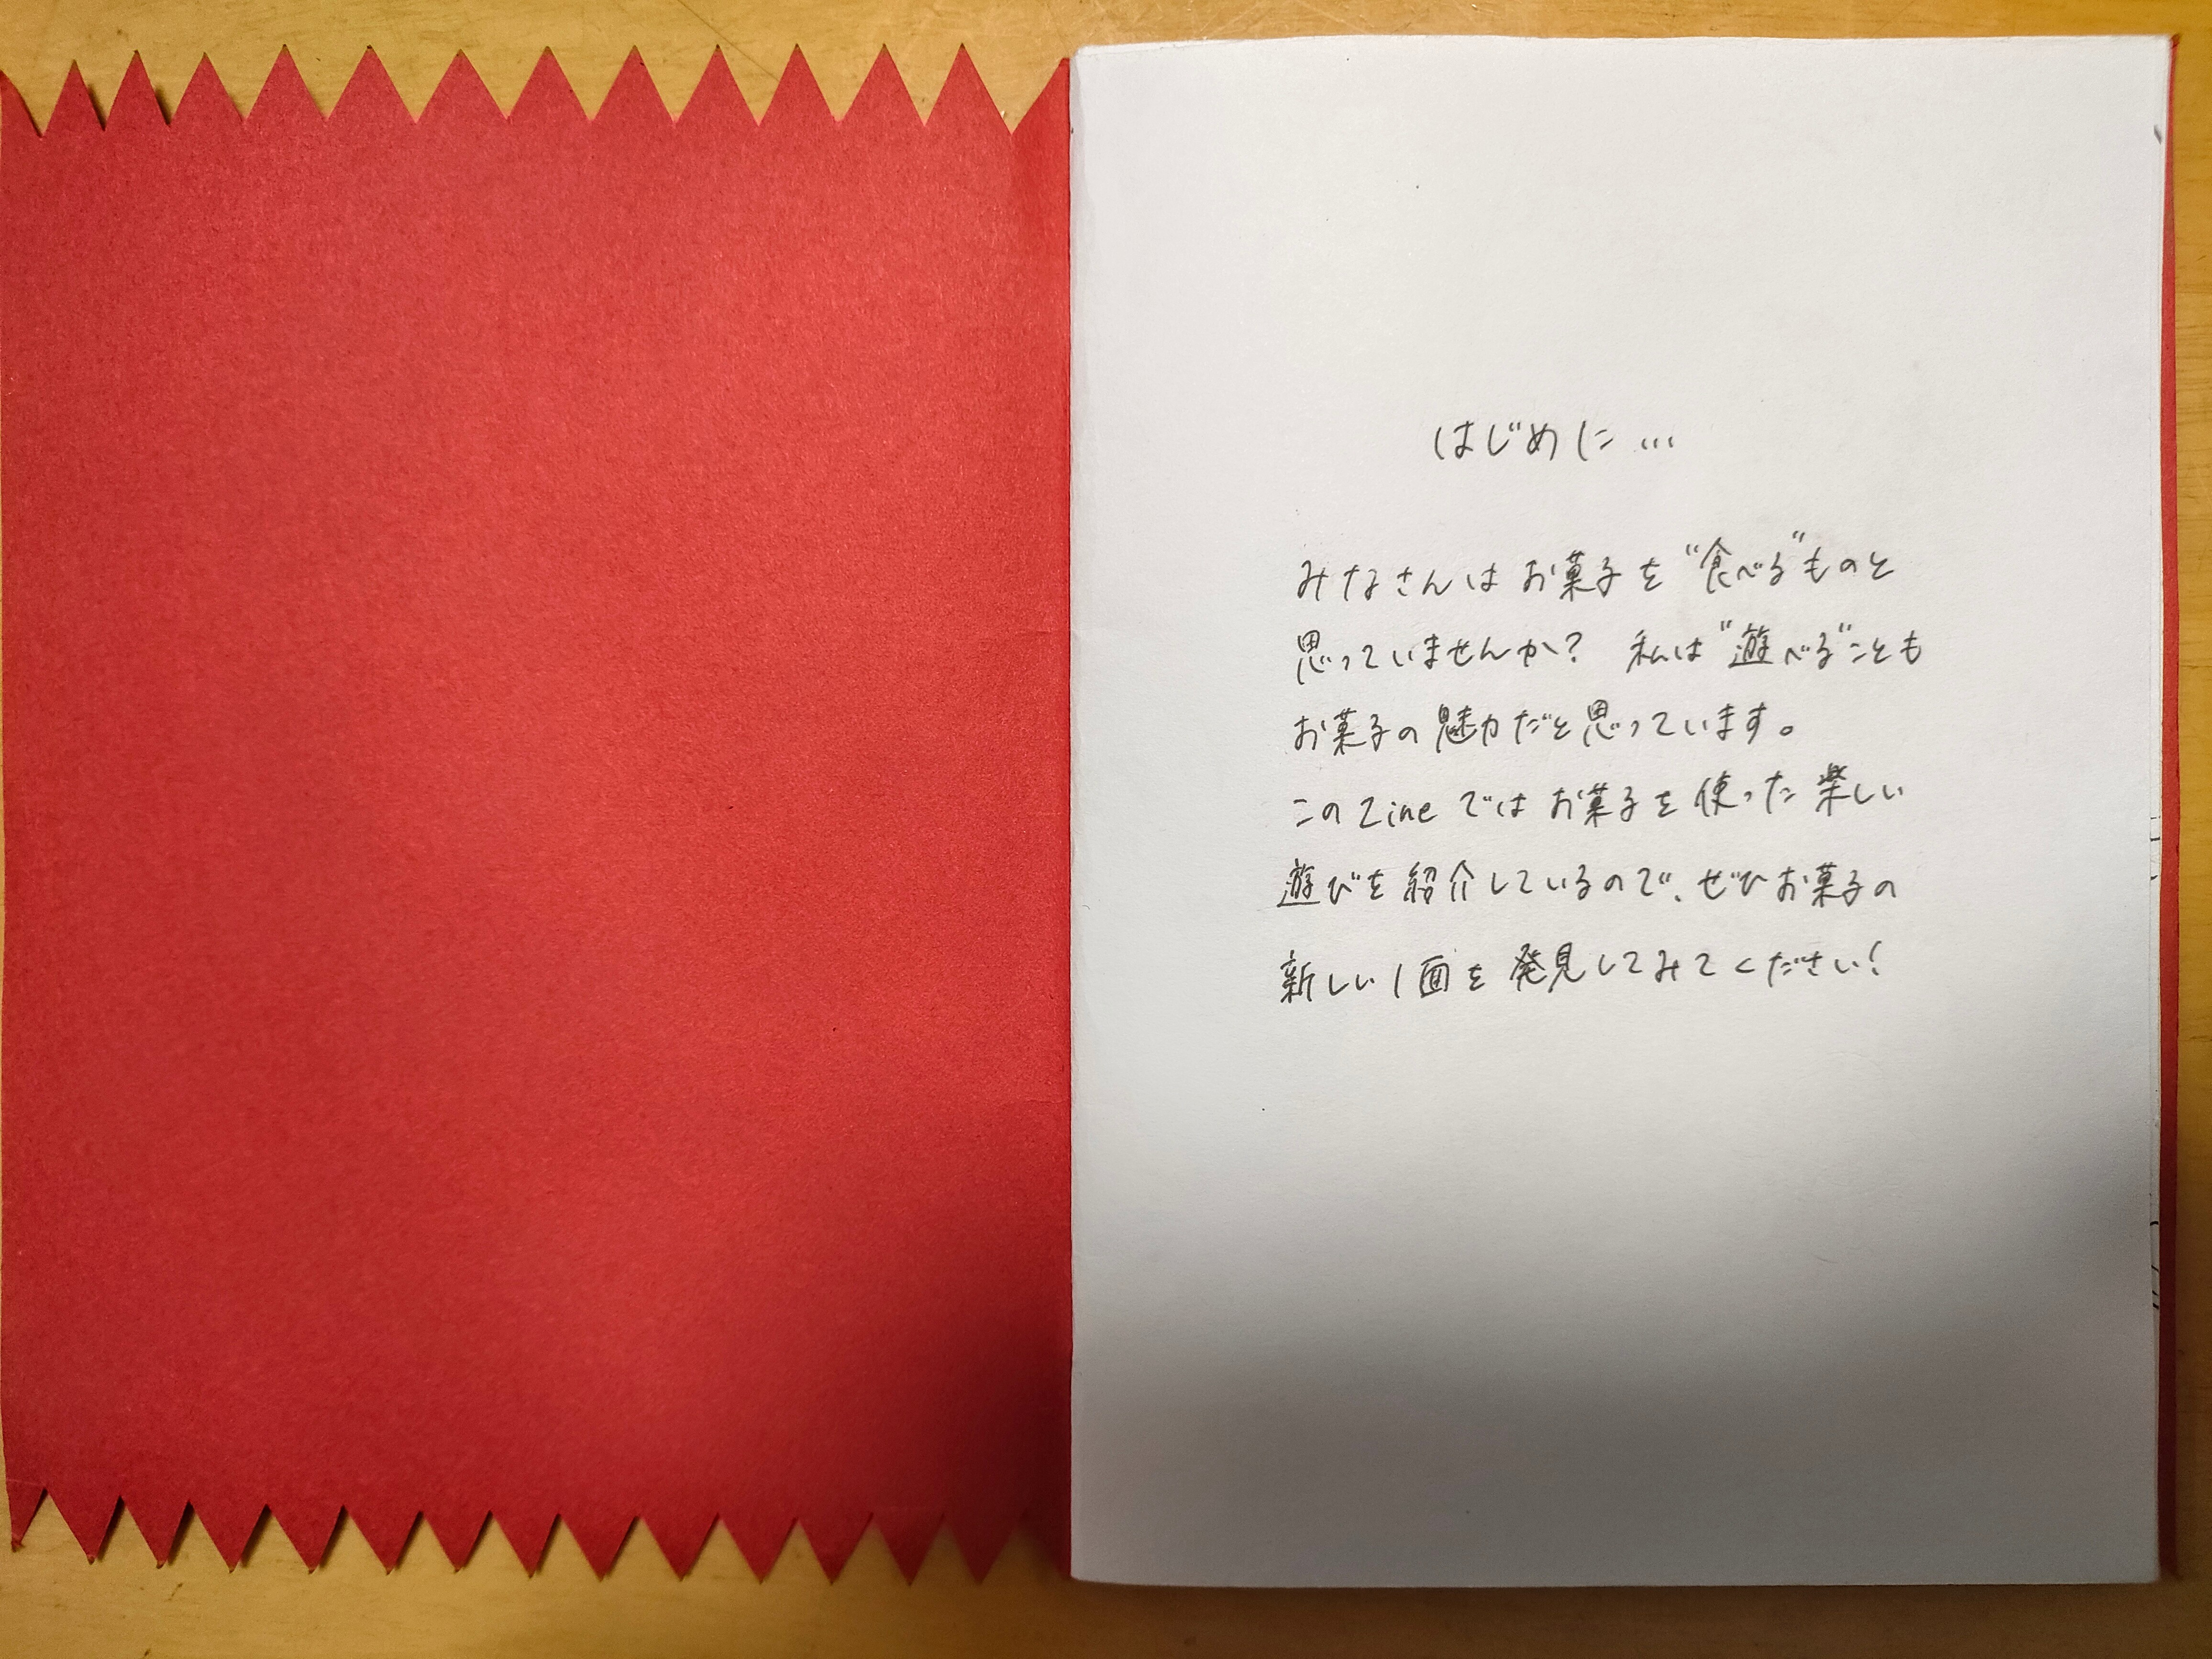 はじめに…
みなさんはお菓子を“食べる”ものと
思っていませんか？ 私は“遊べる”ことも
お菓子の魅力だと思っています。
このZineではお菓子を使った楽しい
遊びを紹介しているので、ぜひお菓子の
新しい1面を発見してみてください！